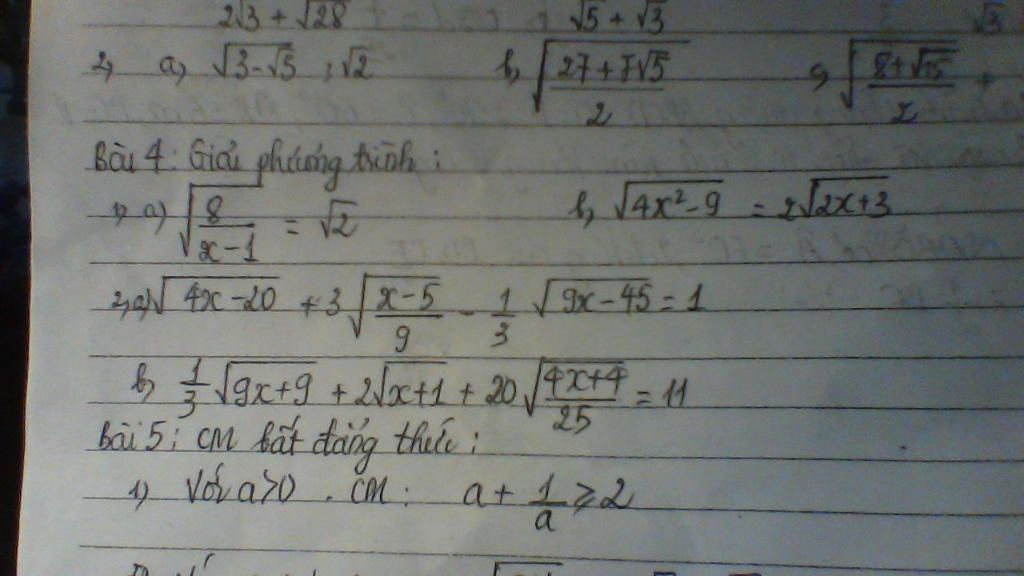 2√3 + √28 √5 + √3 √3
2, a, √(3-√5) . √2 b, √((27+7√5)/2) c, √((8+√15)/2) +
Bài 4: Giải phương trình:
1, a) √(8/(x-1)) = √2 b, √(4x²-9) = 2√(2x+3)
2, a) √(4x-20) + 3√((x-5)/9) - 1/3 √(9x-45) = 1
b, 1/3 √(9x+9) + 2√(x+1) + 20√((4x+4)/25) = 11
Bài 5: CM bất đẳng thức:
1) Với a>0. CM: a + 1/a ≥ 2